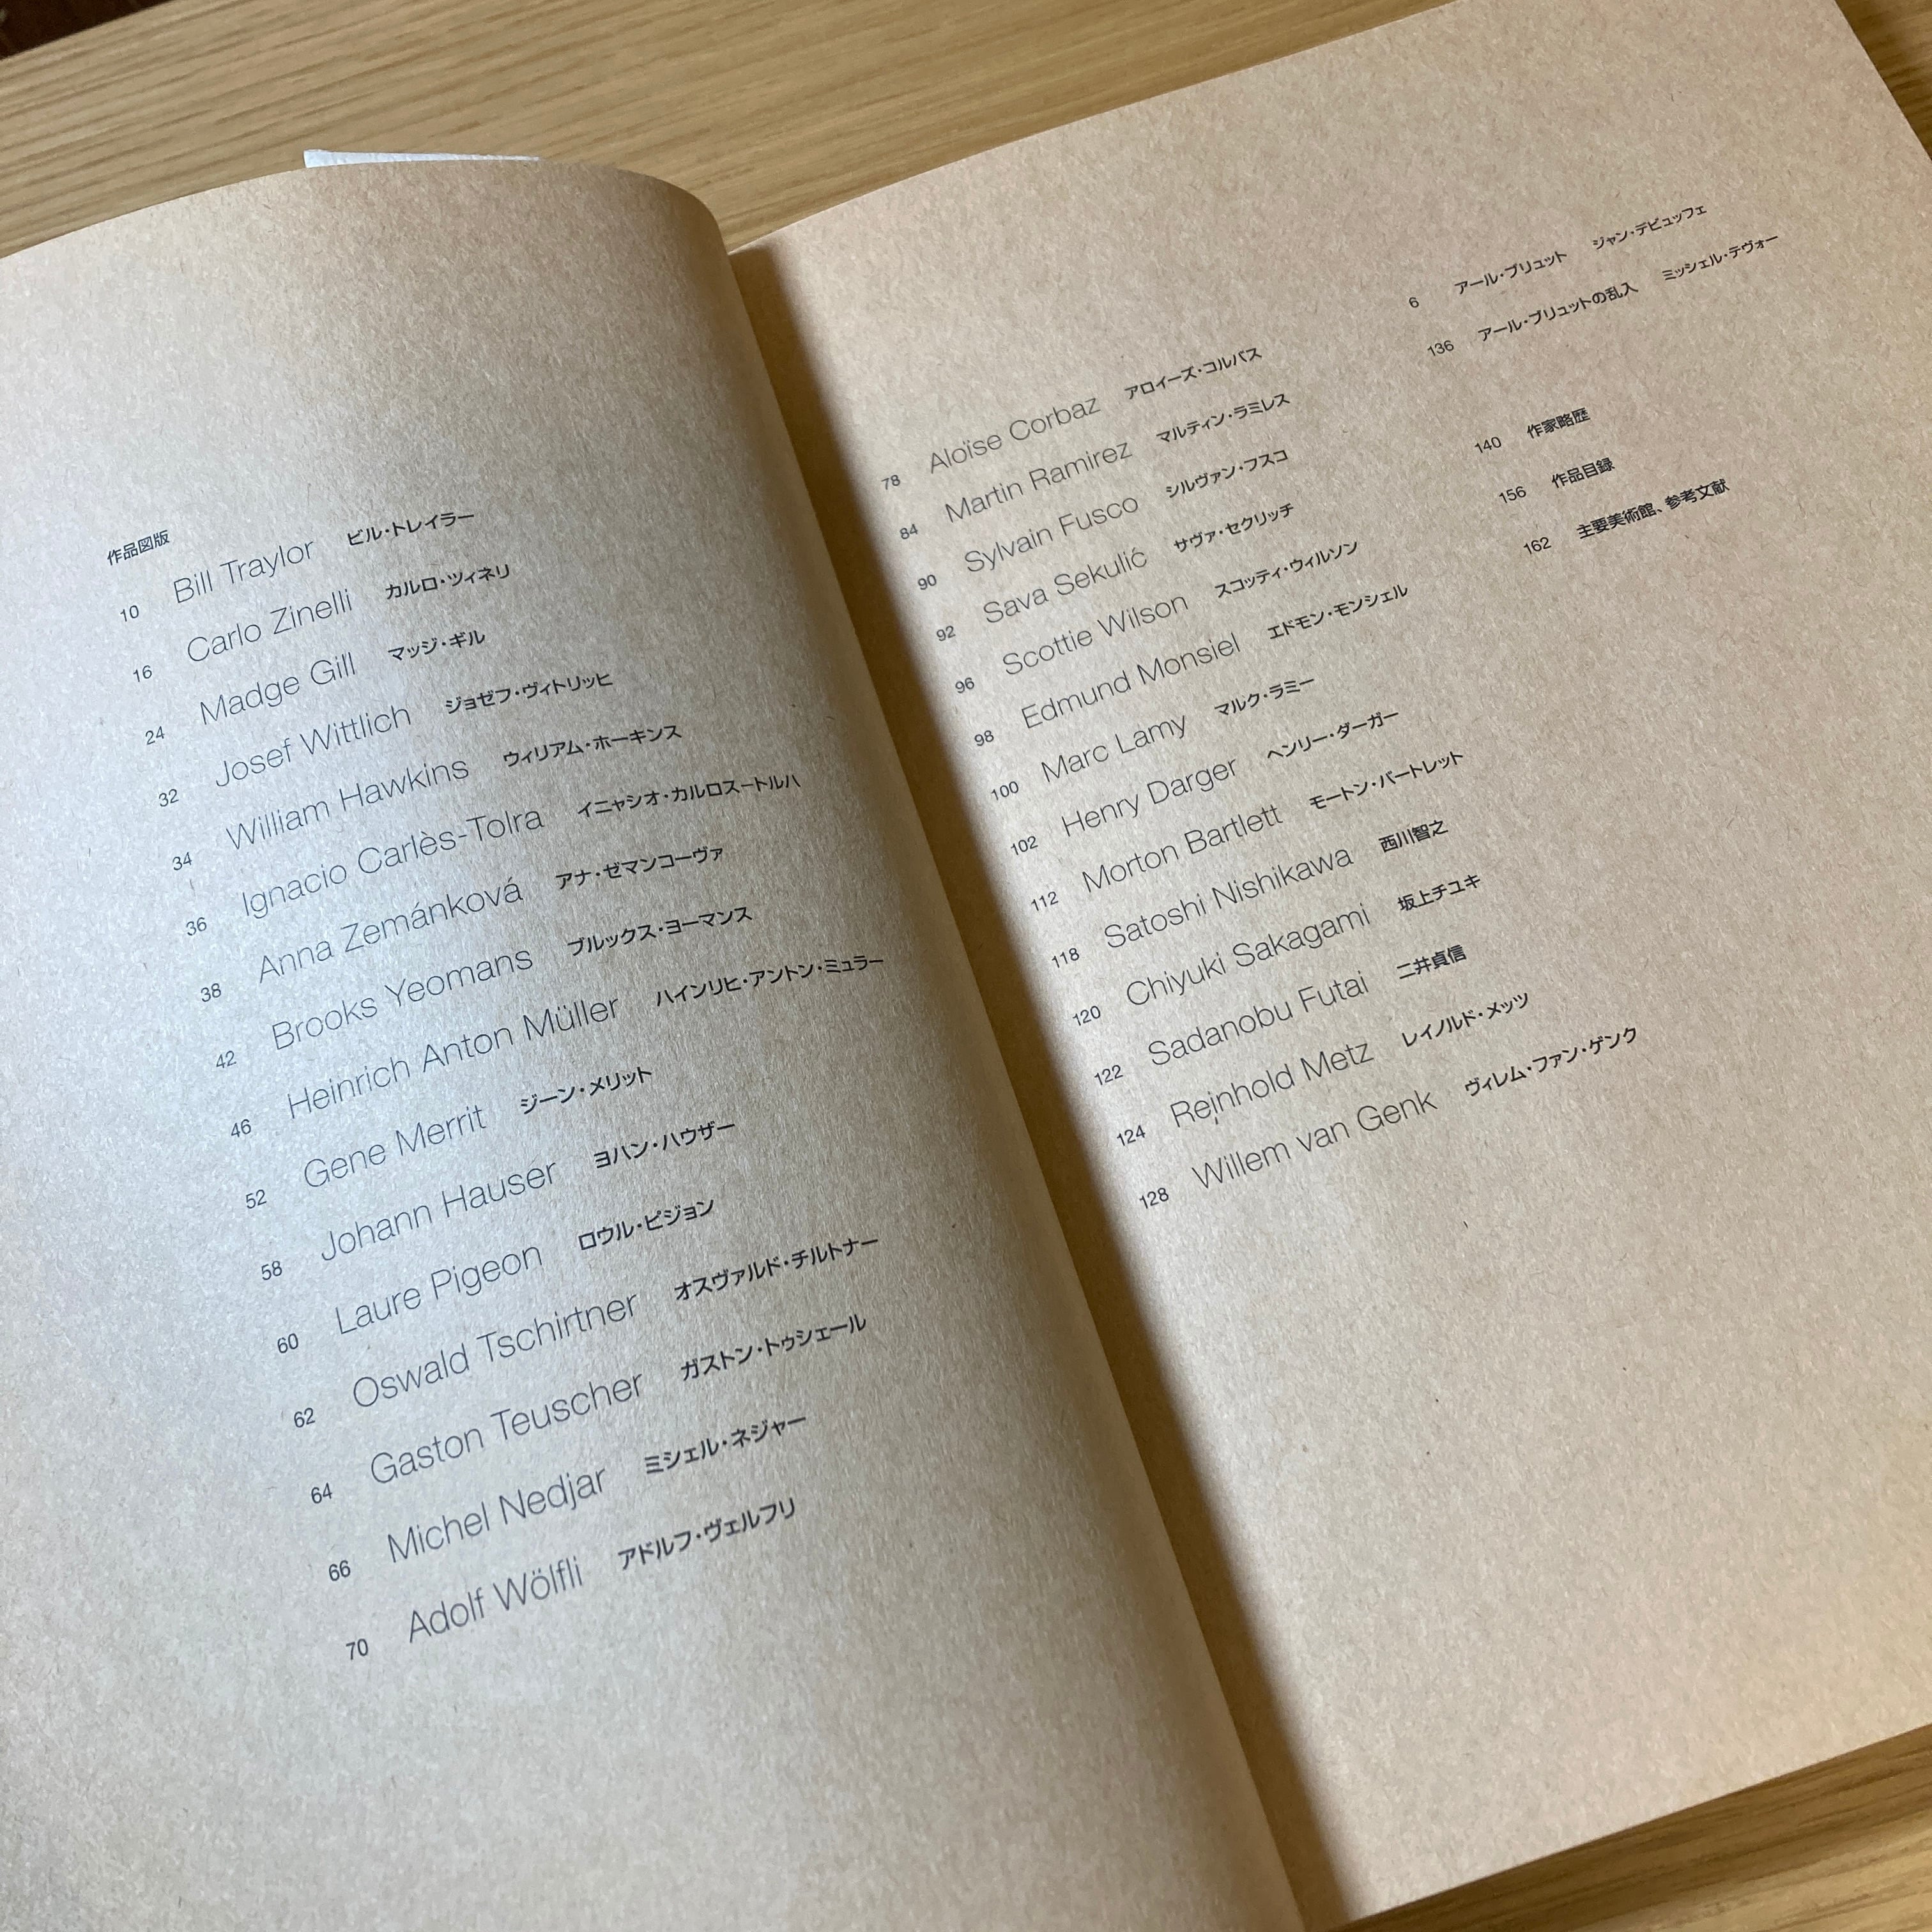 作品図版
10 Bill Traylor ビル・トレイラー
16 Carlo Zinelli カルロ・ツィネリ
24 Madge Gill マッジ・ギル
32 Josef Wittlich ジョゼフ・ヴィトリッヒ
34 William Hawkins ウィリアム・ホーキンス
36 Ignacio Carlès-Tolra イニャシオ・カルロス−トルハ
38 Anna Zemánková アナ・ゼマンコーヴァ
42 Brooks Yeomans ブルックス・ヨーマンス
46 Heinrich Anton Müller ハインリヒ・アントン・ミュラー
52 Gene Merrit ジーン・メリット
58 Johann Hauser ヨハン・ハウザー
60 Laure Pigeon ロウル・ピジョン
62 Oswald Tschirtner オスヴァルド・チルトナー
64 Gaston Teuscher ガストン・トゥシェール
66 Michel Nedjar ミシェル・ネジャー
70 Adolf Wölfli アドルフ・ヴェルフリ
78 Aloïse Corbaz アロイーズ・コルバス
84 Martin Ramirez マルティン・ラミレス
90 Sylvain Fusco シルヴァン・フスコ
92 Sava Sekulić サヴァ・セクリッチ
96 Scottie Wilson スコッティ・ウィルソン
98 Edmund Monsiel エドモン・モンシェル
100 Marc Lamy マルク・ラミー
102 Henry Darger ヘンリー・ダーガー
112 Morton Bartlett モートン・バートレット
118 Satoshi Nishikawa 西川智之
120 Chiyuki Sakagami 坂上チユキ
122 Sadanobu Futai 二井貞信
124 Reinhold Metz レイノルド・メッツ
128 Willem van Genk ヴィレム・ファン・ゲンク
6 アール・ブリュット ジャン・デビュッフェ
136 アール・ブリュットの乱入 ミッシェル・テヴォー
140 作家略歴
156 作品目録
162 主要美術館、参考文献